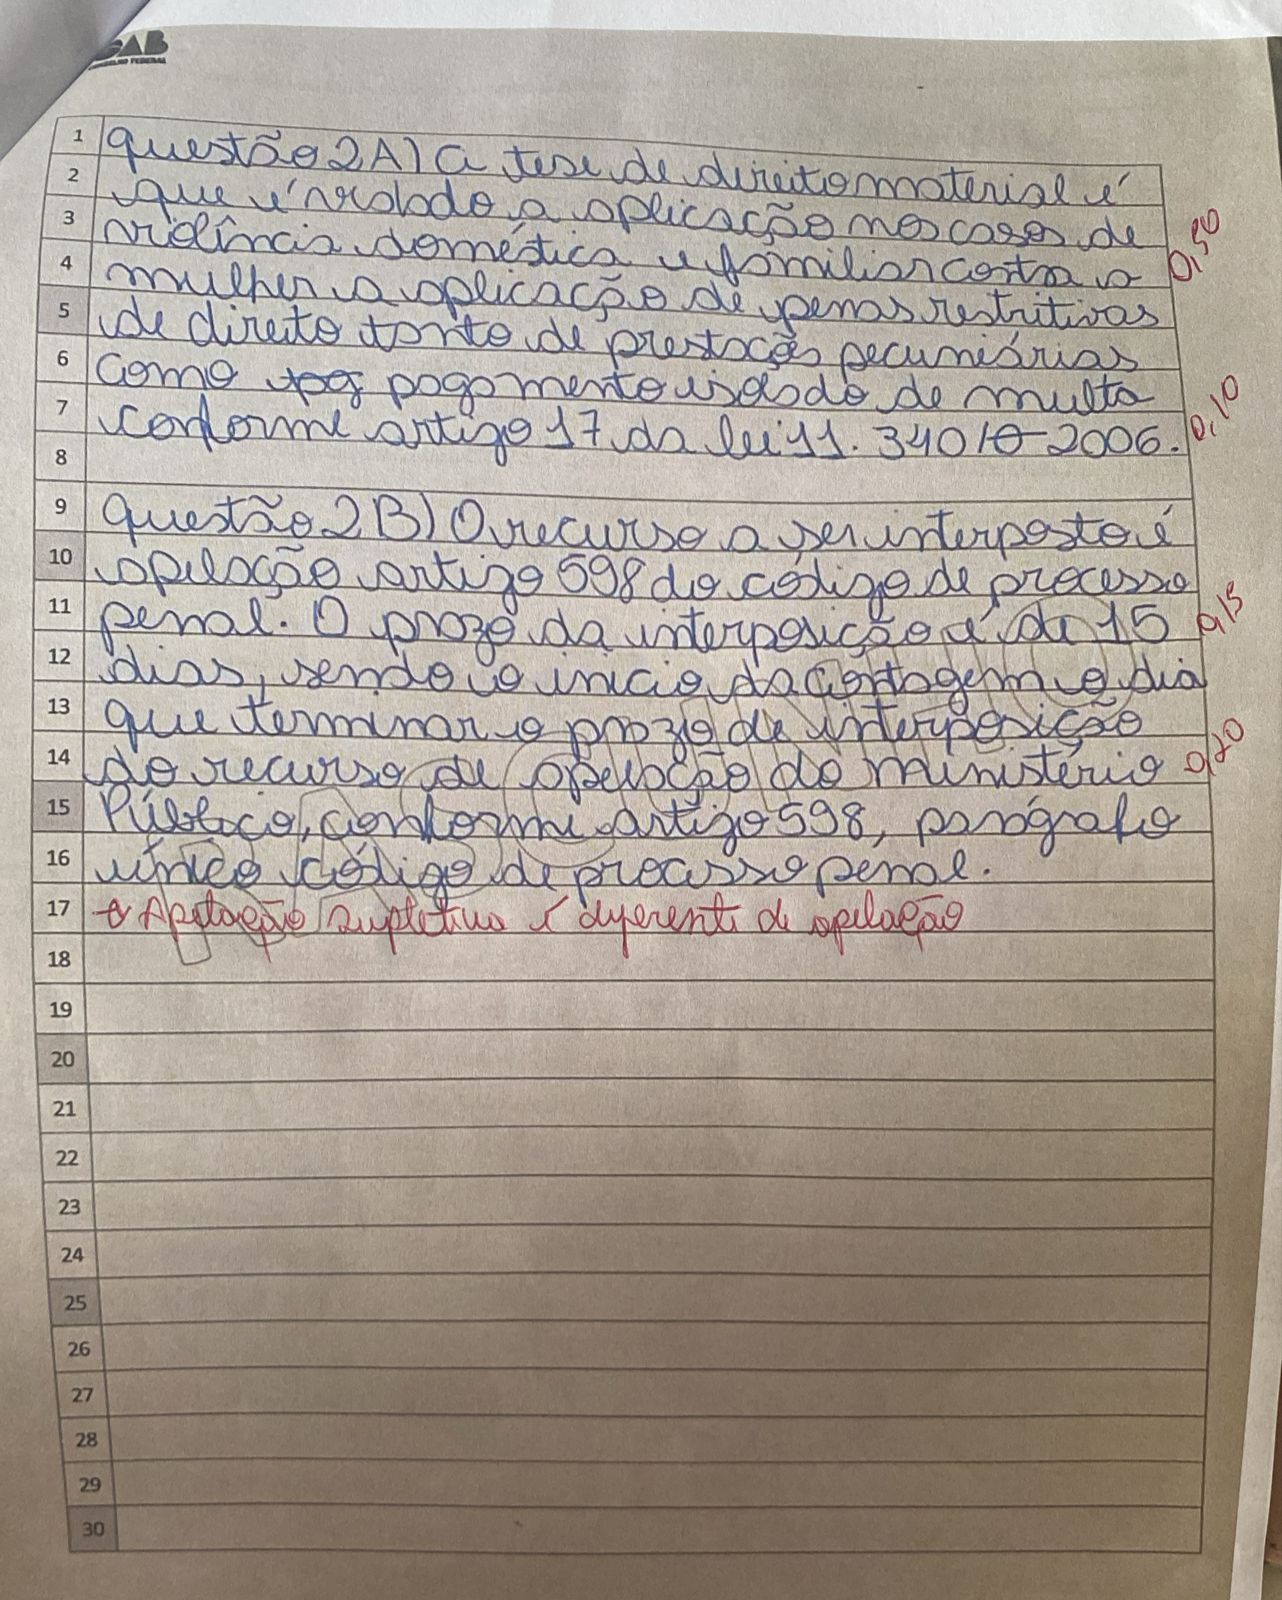 OAB
CONSELHO FEDERAL
1 Questão 2A) A tese de direito material é
2 que é vedado a aplicação nos casos de
3 violência doméstica e familiar contra a 0,50
4 mulher a aplicação de penas restritivas
5 de direito tanto de prestações pecuniárias
6 como pag pagamento isolado de multa
7 conforme artigo 17 da lei 11.340/ 2006. 0,10
8
9 Questão 2B) O recurso a ser interposto é
10 apelação artigo 598 do código de processo
11 penal. O prazo da interposição é de 15 0,15
12 dias, sendo o início da contagem o dia
13 que terminar o prazo de interposição
14 do recurso de apelação do ministério 0,20
15 Público, conforme artigo 598, parágrafo
16 único código de processo penal.
17 Apelação supletiva é diferente de apelação
18
19
20
21
22
23
24
25
26
27
28
29
30